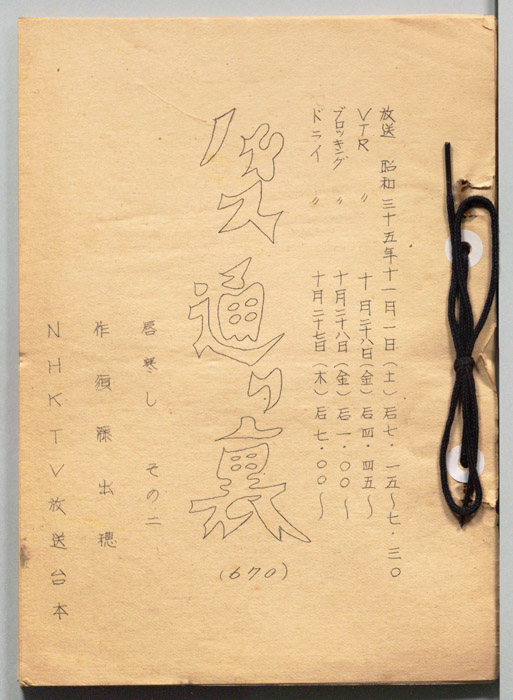 放送 昭和三十五年十一月一日(土)后七・一五〜七・三〇
VTR 〃 十月二十八日(金)后四・四五〜
ブロッキング 〃 十月二十八日(金)后一・〇〇〜
ドライ 〃 十月二十七日(木)后七・〇〇〜
バス通り裏
(670)
唇寒し その二
作 須藤出穂
NHKTV放送台本